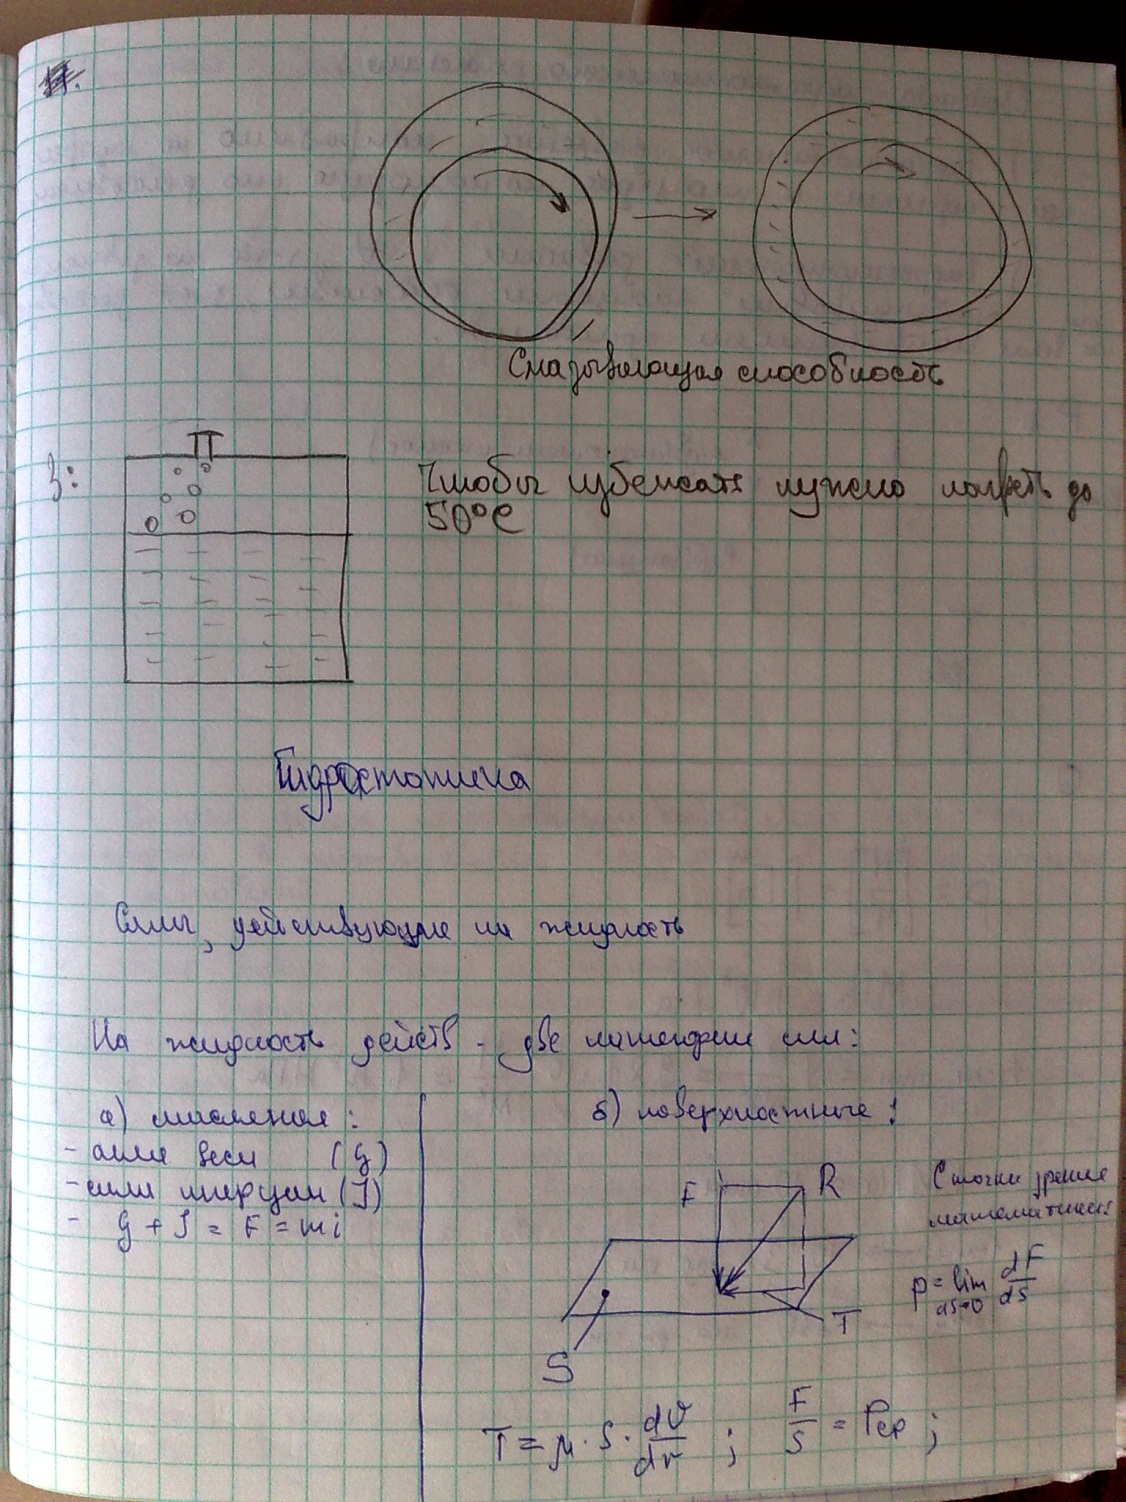 Смазывающая способность
З:
Чтобы избежать нужно нагреть до
50°С
Гидростатика
Силы, действующие на жидкость
На жидкость действ - две категории сил:
а) массовая :
- сила веса (G)
- сила инерции (J)
- G + J = F = mi
б) поверхностные :
F
R
T
S
С точки зрения
математики
p = lim dF/dS
dS→0
T = μ · S · dϑ/dr ; F/S = Pср ;